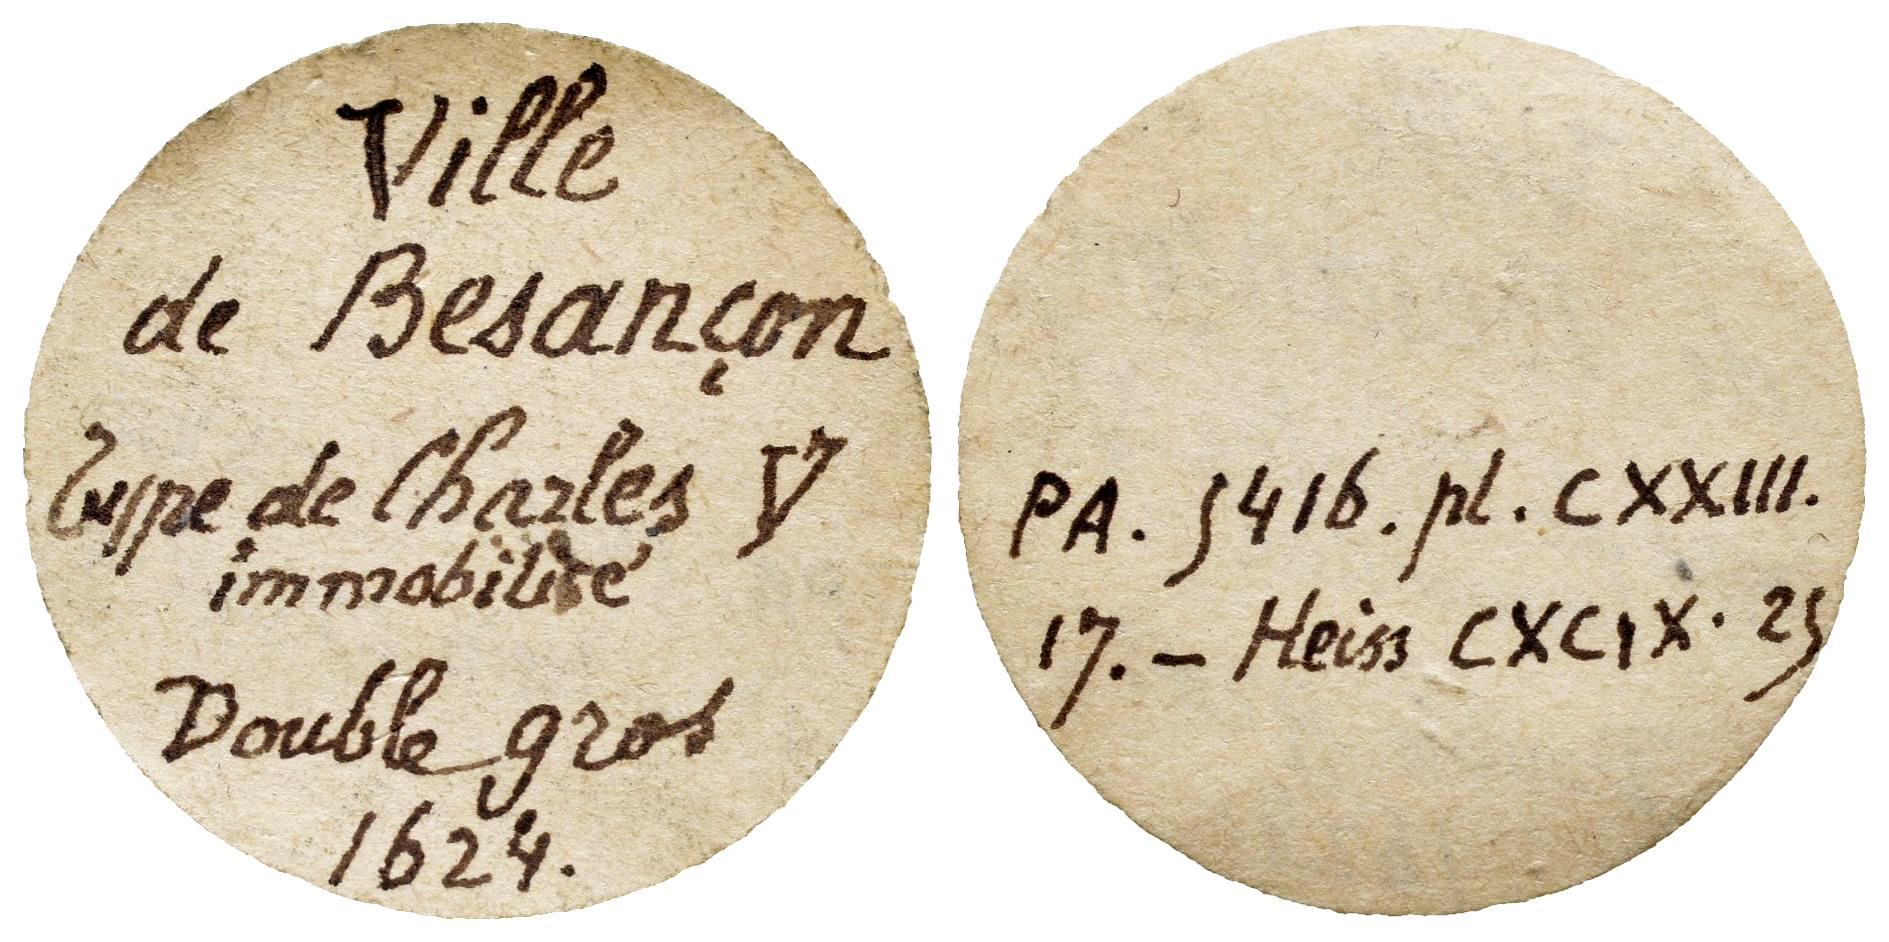 Ville
de Besançon
Type de Charles V
immobilisé
Double gros
1624.
PA. 5416. pl. CXXIII.
17. - Heiss CXCIX. 25